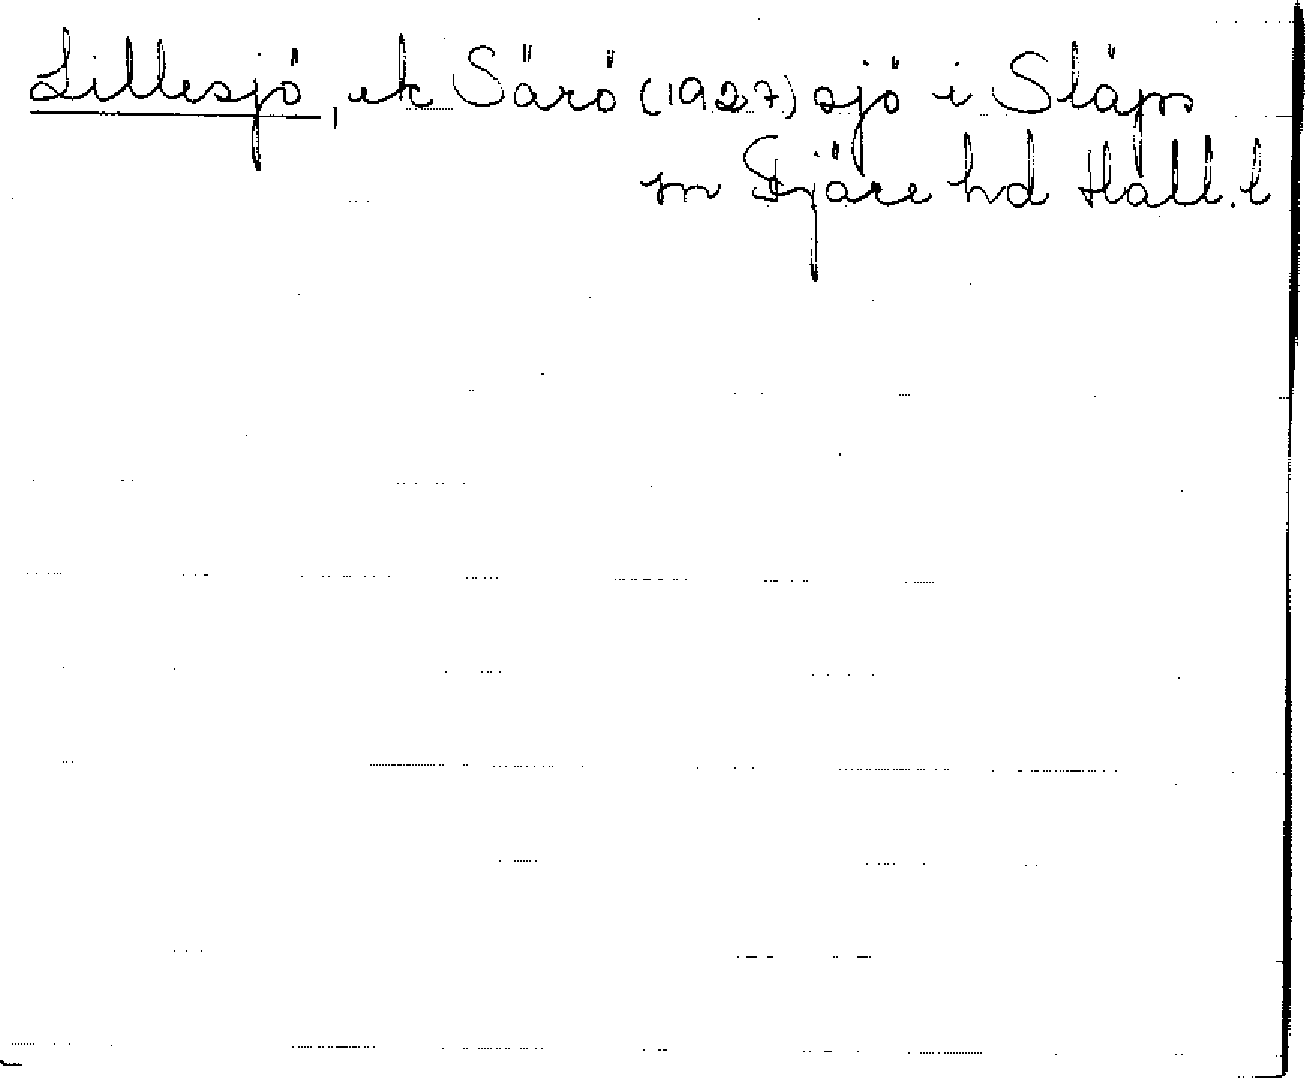 Lillesjö, ek Särö (1927) sjö i Släps
sn Fjäre hd Hall. l